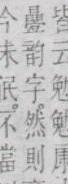 皆云勉勉康
疊韵字然則
今未詆不當